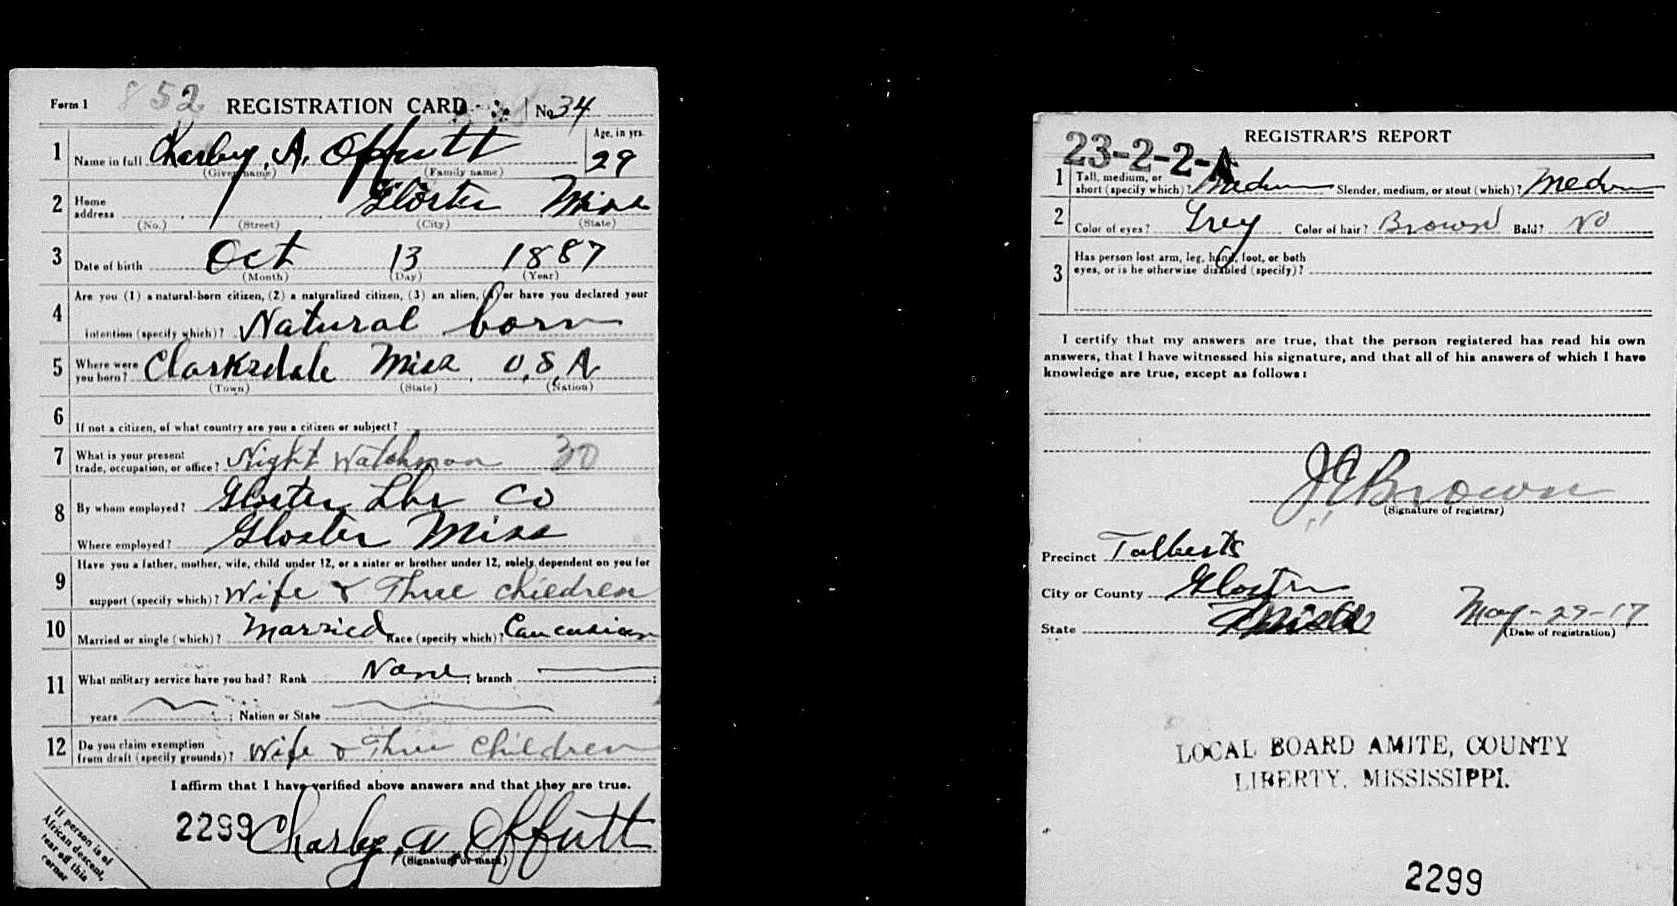 Form 1 852 REGISTRATION CARD No. 34
1 Name in full Charley, A, Offutt Age, in yrs. 29
(Given name) (Family name)
2 Home address Gloster Miss
(No.) (Street) (City) (State)
3 Date of birth Oct 13 1887
(Month) (Day) (Year)
4 Are you (1) a natural-born citizen, (2) a naturalized citizen, (3) an alien, (4) or have you declared your
intention (specify which)? Natural born
5 Where were you born? Clarksdale Miss U,S,A,
(Town) (State) (Nation)
6 If not a citizen, of what country are you a citizen or subject?
7 What is your present trade, occupation, or office? Night Watchman 30
8 By whom employed? Gloster Lbr Co
Where employed? Gloster Miss
9 Have you a father, mother, wife, child under 12, or a sister or brother under 12, solely dependent on you for
support (specify which)? Wife & Three children
10 Married or single (which)? Married Race (specify which)? Caucasian
11 What military service have you had? Rank None ; branch ;
years ; Nation or State
12 Do you claim exemption from draft (specify grounds)? Wife & Three Children
I affirm that I have verified above answers and that they are true.
2299 Charley, A, Offutt
(Signature or mark)
If person is of
African descent,
tear off this
corner
REGISTRAR'S REPORT
23-2-2-A
1 Tall, medium, or short (specify which)? Medium Slender, medium, or stout (which)? Medium
2 Color of eyes? Grey Color of hair? Brown Bald? No
3 Has person lost arm, leg, hand, foot, or both
eyes, or is he otherwise disabled (specify)?
I certify that my answers are true, that the person registered has read his own
answers, that I have witnessed his signature, and that all of his answers of which I have
knowledge are true, except as follows:
J E Brown
(Signature of registrar)
Precinct Talberts
City or County Gloster
State Miss May-29-17
(Date of registration)
LOCAL BOARD AMITE, COUNTY
LIBERTY, MISSISSIPPI.
2299